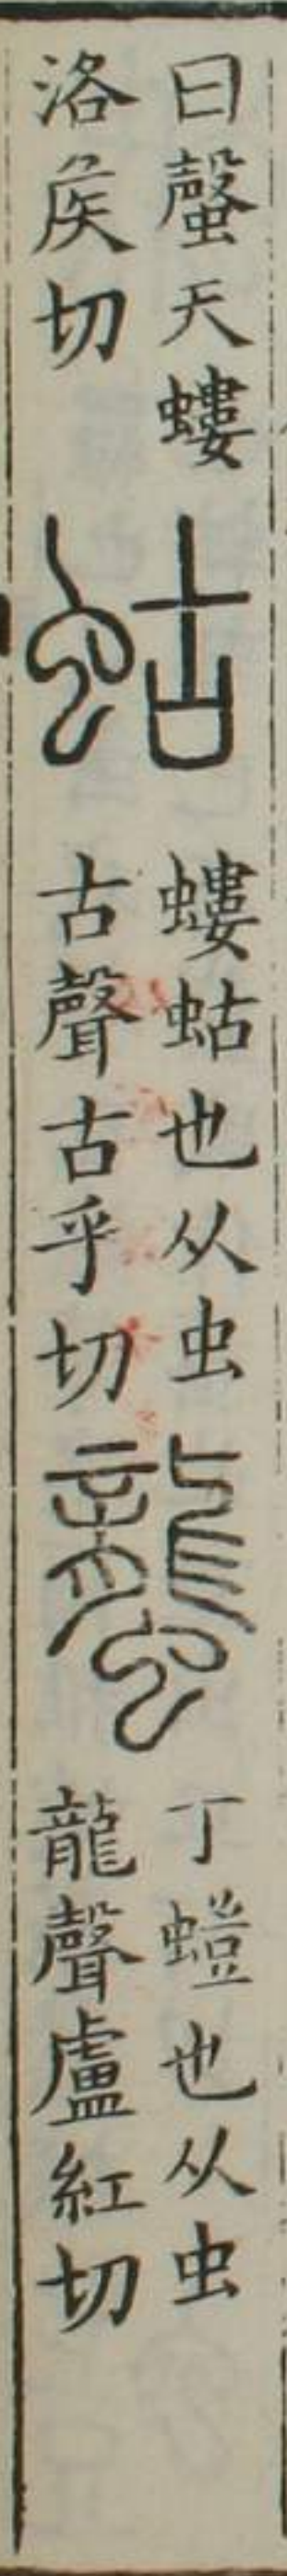 曰䗤天螻
洛矦切
蛄
螻蛄也从虫
古聲古乎切
蠪
丁螘也从虫
龍聲盧紅切